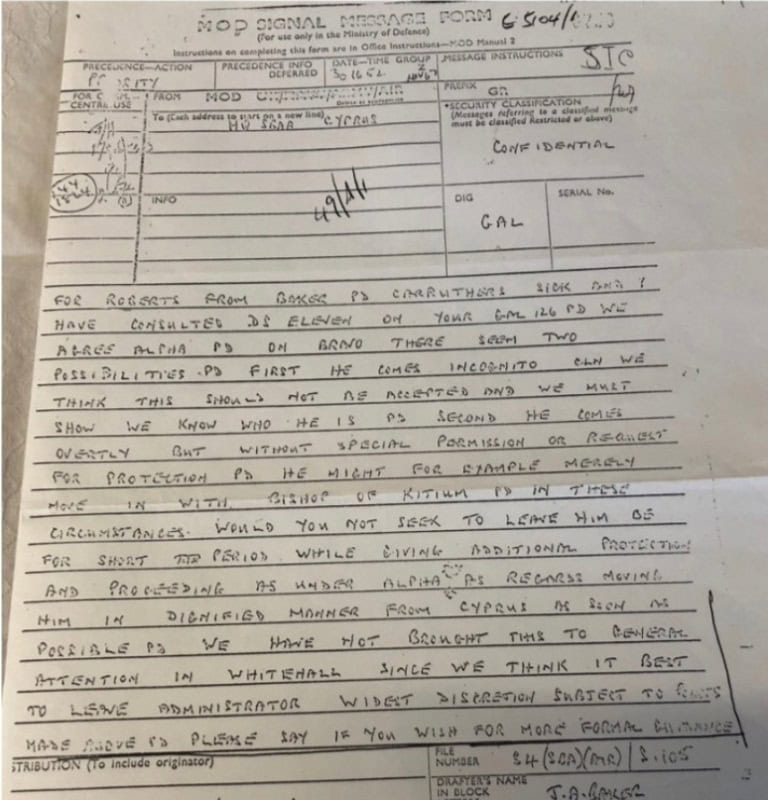 MOD SIGNAL MESSAGE FORM
(For use only in the Ministry of Defence)
Instructions on completing this form are in Office Instructions—MOD Manual 2
PRECEDENCE—ACTION
PRECEDENCE INFO
DEFERRED
DATE—TIME GROUP
MESSAGE INSTRUCTIONS
SIC
FOR
CENTRE USE
FROM MOD
PREFIX GR
To (Each address to start on a new line)
HQ SBAA CYPRUS
*SECURITY CLASSIFICATION
(Messages referring to a classified message
must be classified Restricted or above)
CONFIDENTIAL
INFO
DIG
GAL
SERIAL No.
FOR ROBERTS FROM BAKER PD CARRUTHERS SICK AND I
HAVE CONSULTED DS ELEVEN ON YOUR GAL 126 PD WE
AGREE ALPHA PD ON BRAVO THERE SEEM TWO
POSSIBILITIES PD FIRST HE COMES INCOGNITO CLN WE
THINK THIS SHOULD NOT BE ACCEPTED AND WE MUST
SHOW WE KNOW WHO HE IS PD SECOND HE COMES
OVERTLY BUT WITHOUT SPECIAL PERMISSION OR REQUEST
FOR PROTECTION PD HE MIGHT FOR EXAMPLE MERELY
MOVE IN WITH BISHOP OF KITIUM PD IN THESE
CIRCUMSTANCES WOULD YOU NOT SEEK TO LEAVE HIM BE
FOR SHORT PERIOD WHILE GIVING ADDITIONAL PROTECTION
AND PROCEEDING AS UNDER ALPHA AS REGARDS MOVING
HIM IN DIGNIFIED MANNER FROM CYPRUS AS SOON AS
POSSIBLE PD WE HAVE NOT BROUGHT THIS TO GENERAL
ATTENTION IN WHITEHALL SINCE WE THINK IT BEST
TO LEAVE ADMINISTRATOR WIDEST DISCRETION SUBJECT TO
MADE ABOVE PD PLEASE SAY IF YOU WISH FOR MORE FORMAL GUIDANCE
STRIBUTION (To include originator)
FILE
NUMBER
DRAFTER'S NAME
IN BLOCK
J.A. BAKER